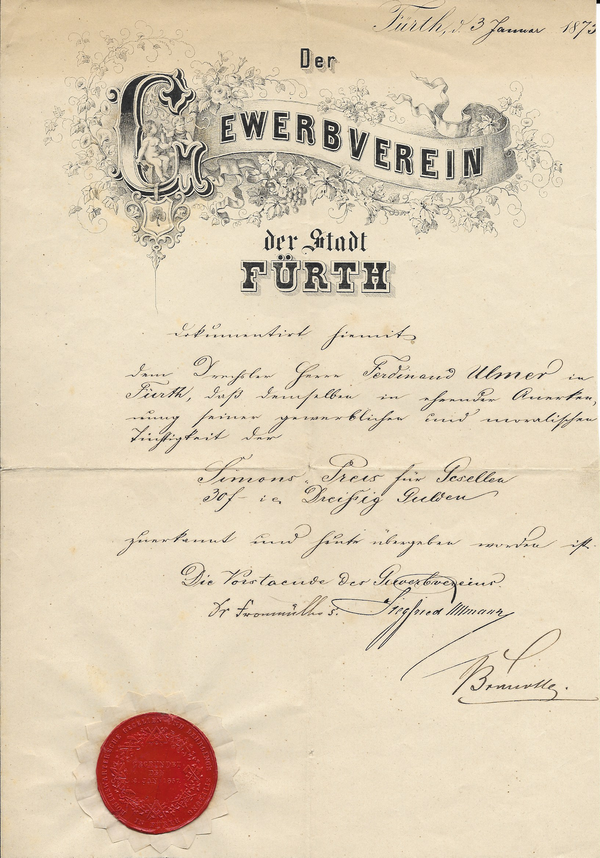 Fürth, d. 3 Januar 1873
Der
GEWERBVEREIN
der Stadt
FÜRTH
dokumentirt hiemit
dem Drechsler Herrn Ferdinand Ulmer in
Fürth, daß demselben in ehrender Anerken,
nung seiner gewerblichen und moralischen
Tüchtigkeit der
Simons-Preis für Gesellen
30f Dreißig Gulden
zuerkannt und heute übergeben worden ist.
Die Vorstaende des Gewerbvereins.
Dr Fronmüller s. Siegfried Ullmann